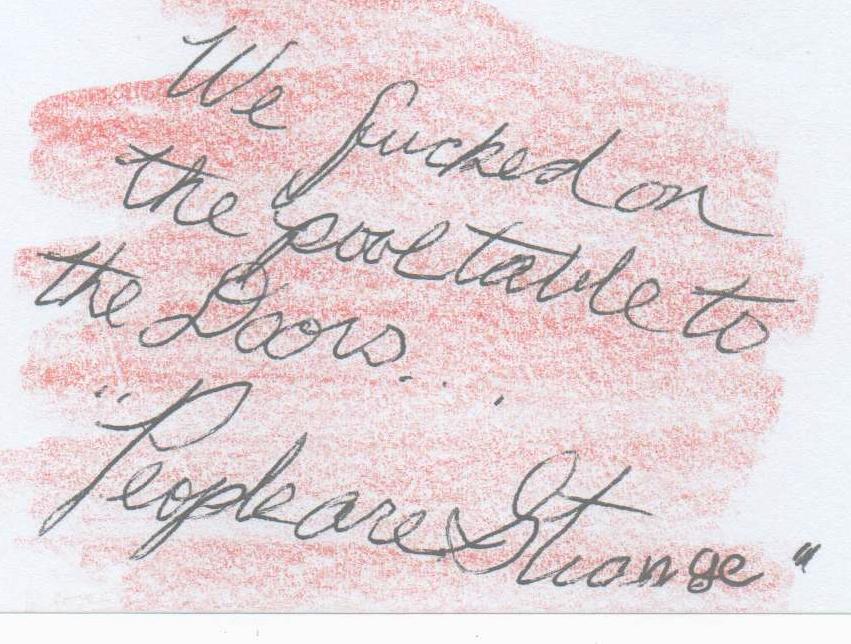 We fucked on
the pool table to
the Doors.
"People are Strange"